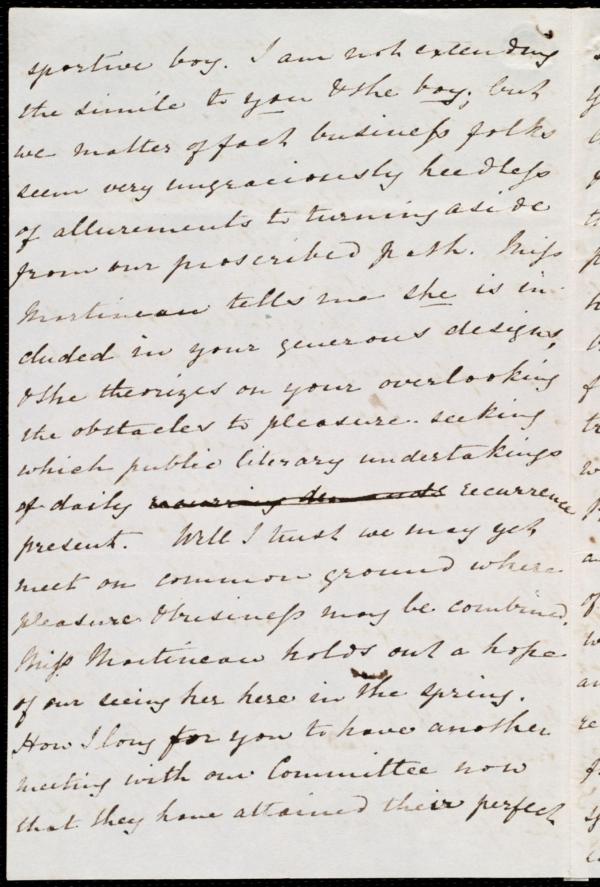 sportive boy. I am not extending
the simile to you & the boy; but
we matter of fact business folks
seem very ungraciously heedless
of allurements to turning aside
from our proscribed path. Miss
Martineau tells me she is in
cluded in your generous designs,
& she theorizes on your overlooking
the obstacles to pleasure-seeking
which public literary undertakings
of daily recurring demands recurrence
present. Well I trust we may yet
meet on common ground where
pleasure & business may be combined.
Miss Martineau holds out a hope
of our seeing her here in the spring.
How I long for you to have another
meeting with our Committee now
that they have attained their perfect